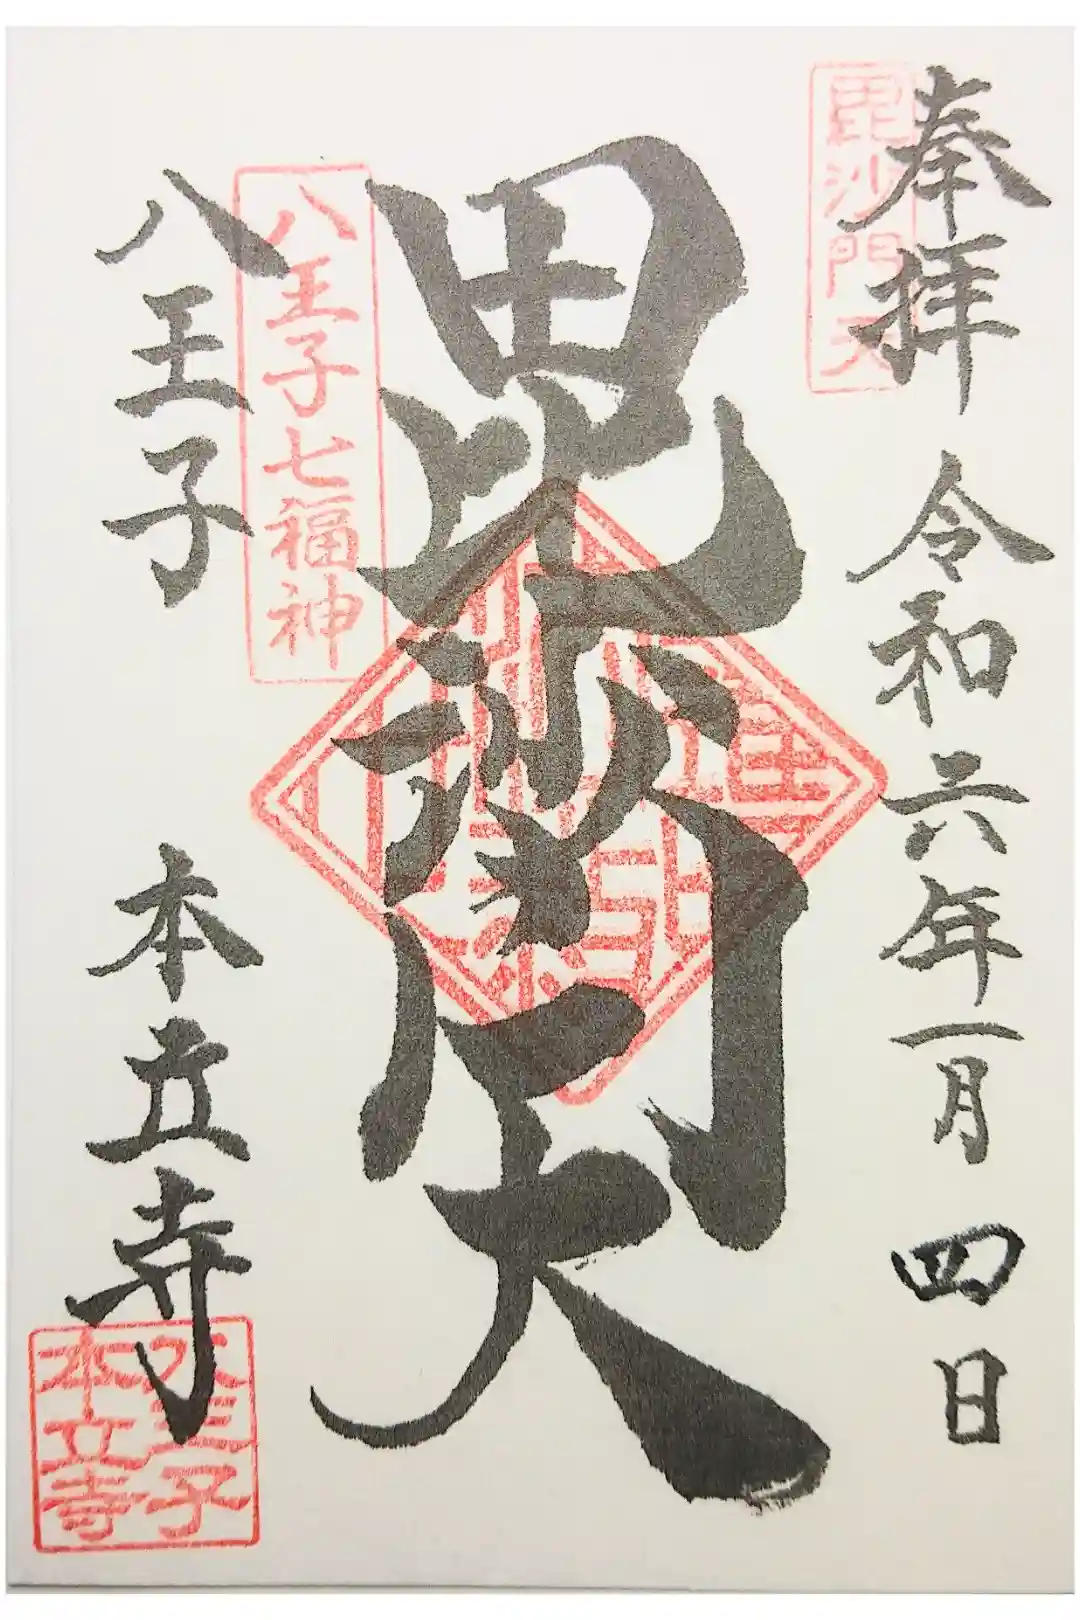 奉拝 令和六年一月四日
毘沙門天
毘沙門天
八王子七福神
八王子 本立寺
八王子
本立寺